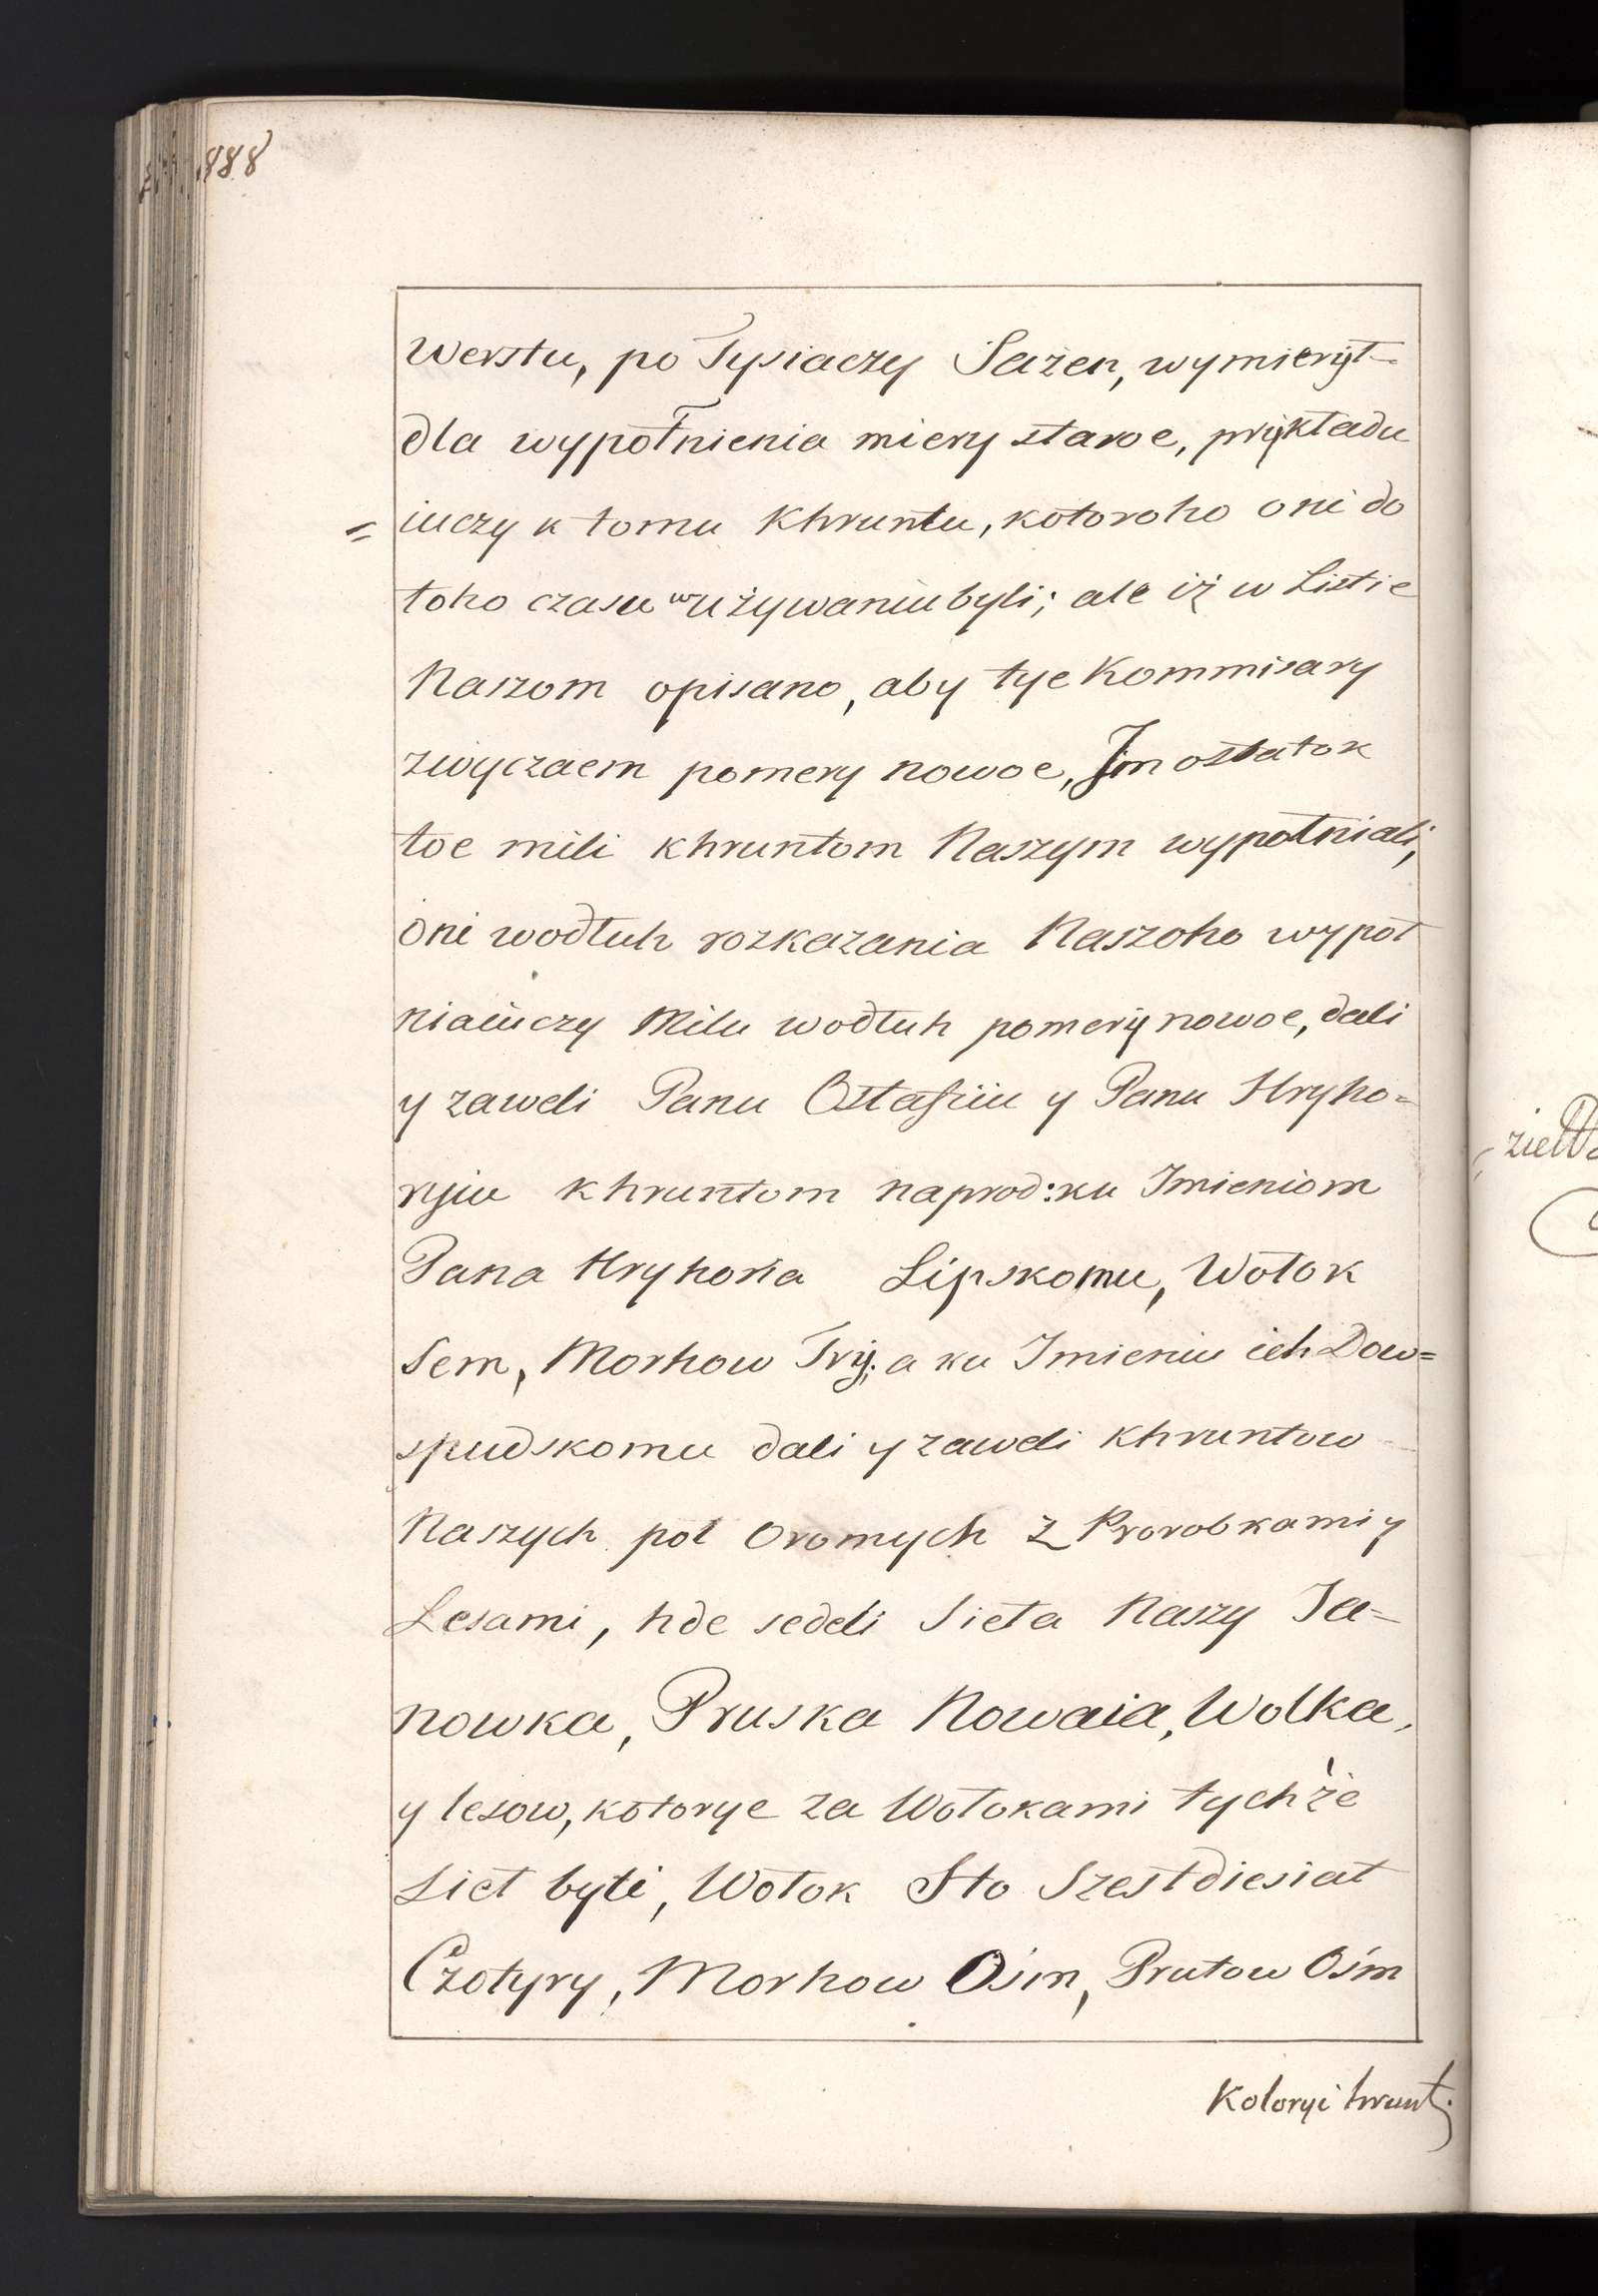 888
Werstu, po Tysiaczy Sażen, wymierijt
dla wypołnienia miery staroe, prijkładu
= iuczy k tomu Khruntu, kotoroho oni do
toho czasu w używaniu byli; ale iż w Listie
Naszom opisano, aby tye Kommisary
zwyczaem pomery nowoe, Jm ostatok
toe mili khruntom Naszym wypołniali,
oni wodłuh rozkazania Naszoho wypoł
niaiuczy Milu wodłuh pomerij nowoe, dali
y zaweli Panu Ostafiiu y Panu Hryho=
ryiu khruntom naprod: ku Imieniom
Pana Hryhoria Lipskomu, Wołok
Sem, Morhow Trij; a ku Imieniu ich Dow=
spudskomu dali y zaweli khruntow
Naszych pol Oromych z Prorobkami y
Lesami, hde sedeli Sieła Naszy Ja=
nowka, Pruska Nowaia, Wolka,
y lesow, kotorye za Wołokami tych że
Sieł byli, Wołok Sto Szestdiesiat
Czotyry, Morhow Ośm, Prutow Ośm
Kotoryi hrunt.
zielW